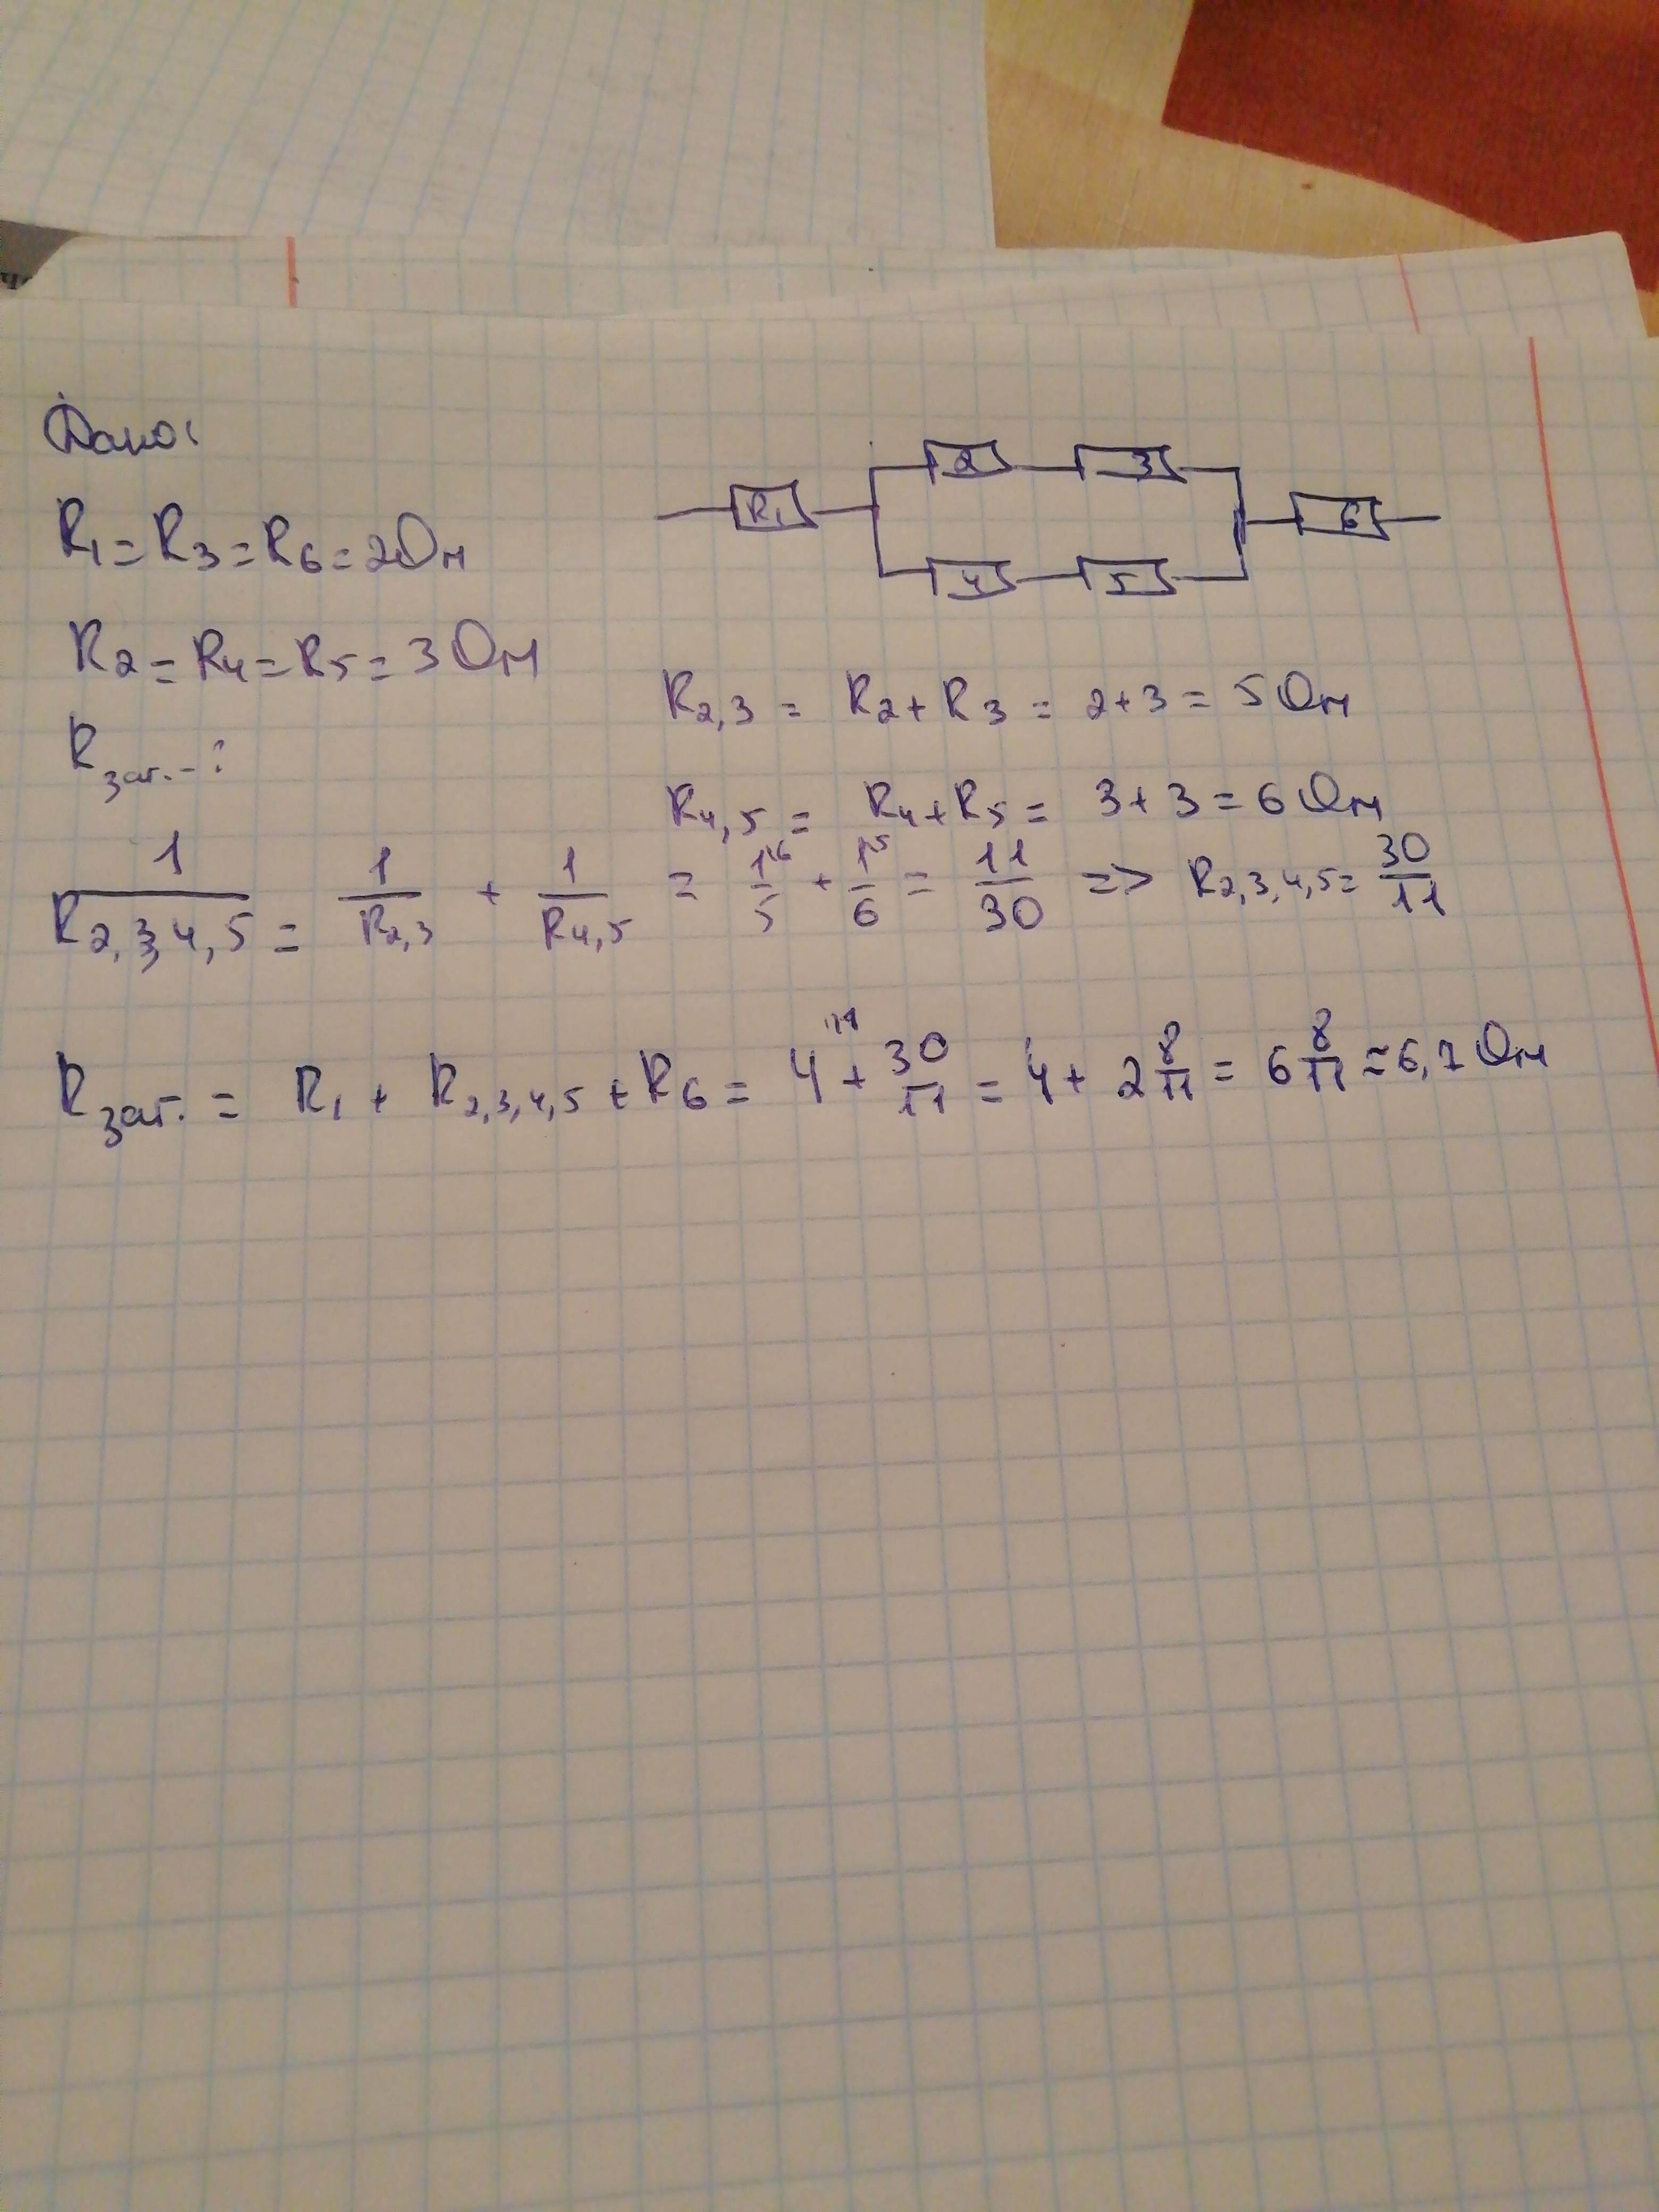 Дано:
R1 = R3 = R6 = 2 Ом
R2 = R4 = R5 = 3 Ом
Rзаг. - ?
R1 2 3 4 5 6
R2,3 = R2 + R3 = 2 + 3 = 5 Ом
R4,5 = R4 + R5 = 3 + 3 = 6 Ом
1/R2,3,4,5 = 1/R2,3 + 1/R4,5 = 1\6/5 + 1\5/6 = 11/30 => R2,3,4,5 = 30/11
Rзаг. = R1 + R2,3,4,5 + R6 = 4 + 30/11 = 4 + 2 8/11 = 6 8/11 ≈ 6,7 Ом